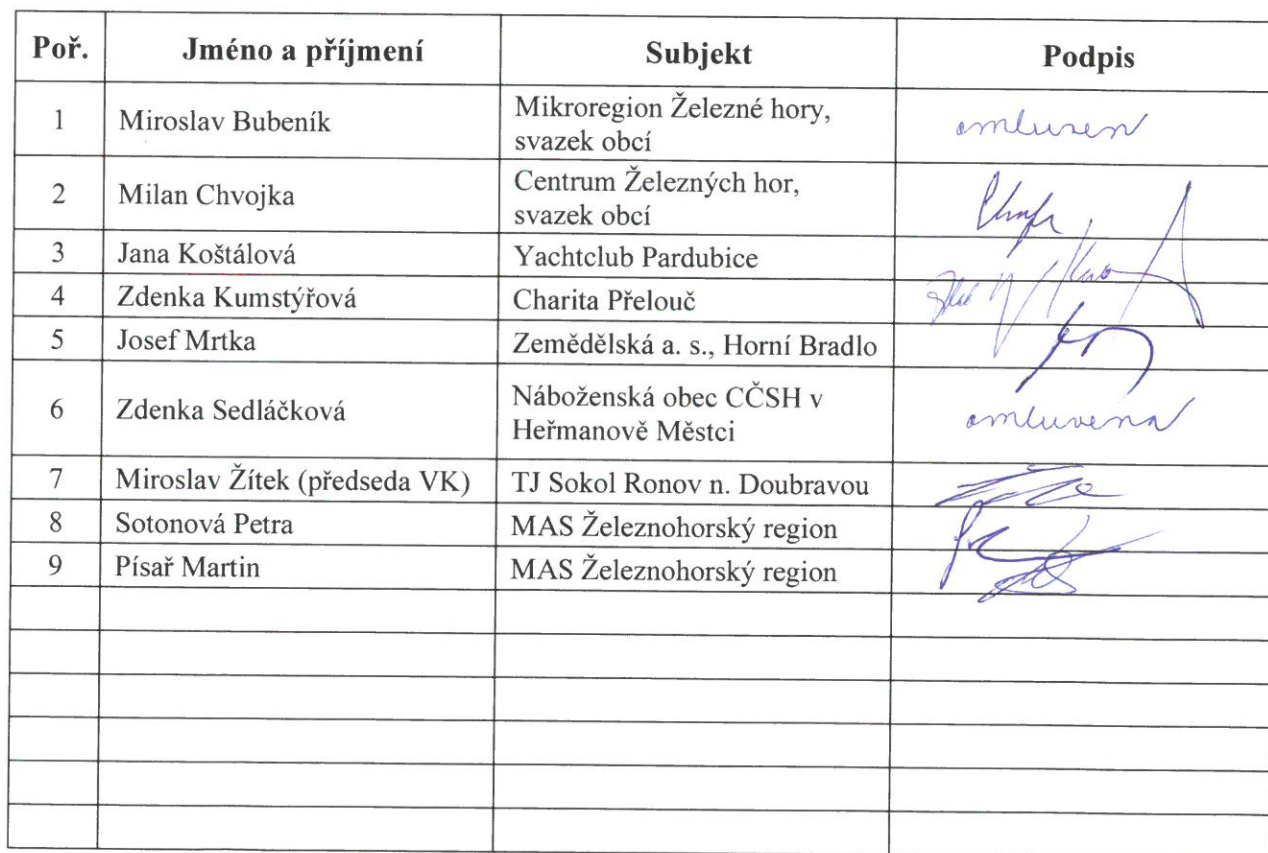 Poř. Jméno a příjmení Subjekt Podpis
1 Miroslav Bubeník Mikroregion Železné hory, omluven
svazek obcí
2 Milan Chvojka Centrum Železných hor,
svazek obcí
3 Jana Koštálová Yachtclub Pardubice
4 Zdenka Kumstýřová Charita Přelouč
5 Josef Mrtka Zemědělská a. s., Horní Bradlo
6 Zdenka Sedláčková Náboženská obec CČSH v omluvena
Heřmanově Městci
7 Miroslav Žítek (předseda VK) TJ Sokol Ronov n. Doubravou
8 Sotonová Petra MAS Železnohorský region
9 Písař Martin MAS Železnohorský region